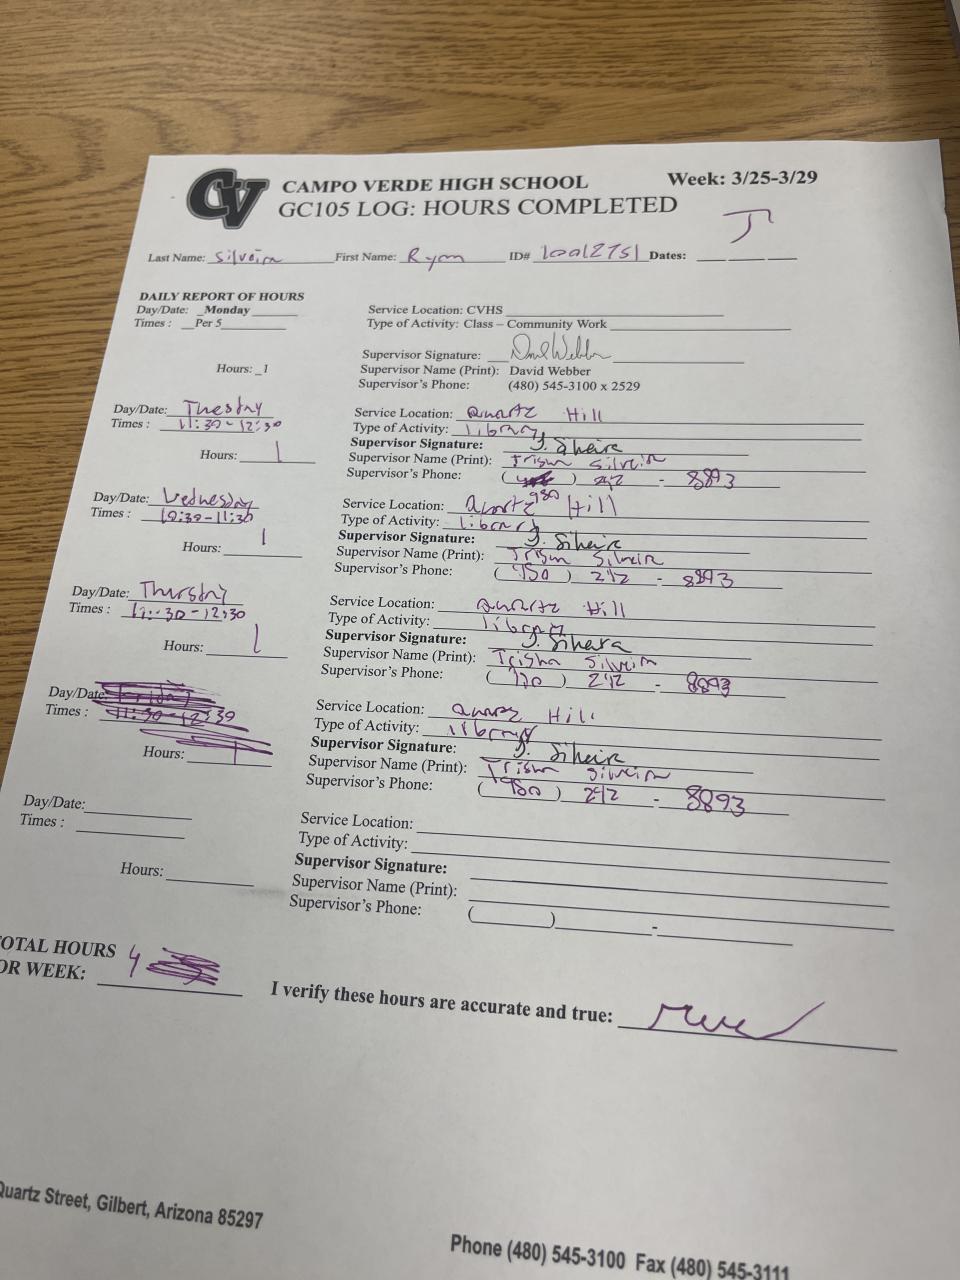 CV CAMPO VERDE HIGH SCHOOL Week: 3/25-3/29
GC105 LOG: HOURS COMPLETED
Last Name: Silveira First Name: Ryan ID# Dates:
DAILY REPORT OF HOURS
Day/Date: Monday Service Location: CVHS
Times : Per 5 Type of Activity: Class – Community Work
Supervisor Signature: David Webber
Hours: 1 Supervisor Name (Print): David Webber
Supervisor's Phone: (480) 545-3100 x 2529
Day/Date: Thesday Service Location: Quartz Hill
Times : 11:30-12:30 Type of Activity: library
Supervisor Signature: T. Silveira
Hours: 1 Supervisor Name (Print): Trisha Silveira
Supervisor's Phone: ( ) 242 - 8893
980
Day/Date: Wednesday Service Location: Quartz Hill
Times : Type of Activity: library
Supervisor Signature: T. Silveira
Hours: 1 Supervisor Name (Print): Trisha Silveira
Supervisor's Phone: ( ) 242 - 8893
Day/Date: Thursday Service Location: Quartz Hill
Times : 11:30-12:30 Type of Activity: library
Supervisor Signature: T. Silveira
Hours: 1 Supervisor Name (Print): Trisha Silveira
Supervisor's Phone: ( ) 242 - 8893
Day/Date: Friday Service Location: Quartz Hill
Times : 11:30-12:30 Type of Activity: library
Supervisor Signature: T. Silveira
Hours: 1 Supervisor Name (Print): Trisha Silveira
Supervisor's Phone: (980) 242 - 8893
Day/Date: Service Location:
Times : Type of Activity:
Supervisor Signature:
Hours: Supervisor Name (Print):
Supervisor's Phone: ( ) -
TOTAL HOURS
OR WEEK: 4
I verify these hours are accurate and true:
Quartz Street, Gilbert, Arizona 85297
Phone (480) 545-3100 Fax (480) 545-3111